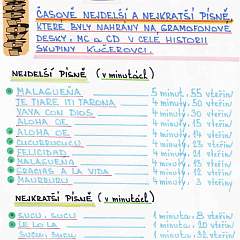 ČASOVĚ NEJDELŠÍ A NEJKRATŠÍ PÍSNĚ,
KTERÉ BYLY NAHRÁNY NA GRAMOFONOVÉ
DESKY, MC a CD V CELÉ HISTORII
SKUPINY KUČEROVCI.
NEJDELŠÍ PÍSNĚ (v minutách)
MALAGUEŇA 5 minut, 55 vteřin
JE TIARE ITI TARONA 4 minuty, 50 vteřin
VAYA CON DIOS 4 minuty, 30 vteřin
ALOHA OE 4 minuty, vteřin
ALOHA OE 4 minuty, 14 vteřin
CUCURRUCUCÚ 4 minuty, 13 vteřin
FELICIDAD 4 minuty, 21 vteřin
MALAGUENA 4 minuty, vteřin
GRACIAS A LA VIDA 4 minuty, 12 vteřin
MAURRURU 4 minuty, 3 vteřiny
NEJKRATŠÍ PÍSNĚ (v minutách)
SUCU, SUCU 1 minuta, 8 vteřin
LE LO LA 1 minuta, 20 vteřin
SUCU, SUCU 1 minuta, 32 vteřin